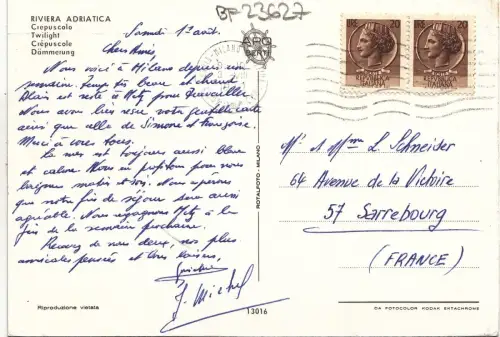 RIVIERA ADRIATICA
Crepuscolo
Twilight
Crépuscule
Dämmerung
BF-23627
Samedi 1er août.
Chers Amis
Nous voici à Milano depuis une
semaine. Temps très beau et chaud
Alain est resté à Metz pour travailler
Nous avons bien reçu votre gentille carte
ainsi que celle de Simone et Françoise.
Merci à vous tous.
La mer est toujours aussi bleue
et calme. Nous en profitons pour nous
baigner matin et soir. Nous espérons
que notre fin de séjour sera aussi
agréable. Nous regagnons Metz à la
fin de la semaine prochaine.
Recevez de nous deux, nos plus
amicales pensées et bons baisers.
J. Michel
Riproduzione vietata
ROTALFOTO - MILANO
13016
ITALIANA
M. et Mme L. Schneider
64 Avenue de la Victoire
57 Sarrebourg
(FRANCE)
DA FOTOCOLOR KODAK EKTACHROME